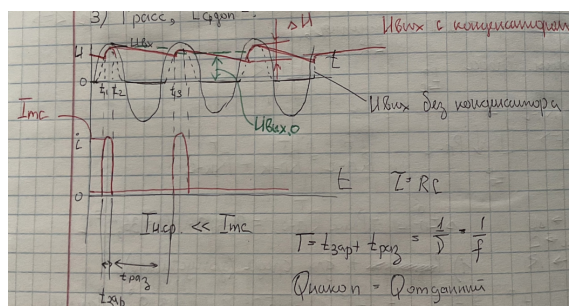 3) Pрасс, Uсрдоп
ΔU
Uвых с конденсатором
U
Uвх
t
0
t₁ t₂ t₃
Uвых без конденсатора
Uвых,0
Imc
i
t
τ = RC
0
Iн.ср. << Imc
T = tзар + tраз = 1/ν = 1/f
tраз
Qнакоп = Qотданный
tзар